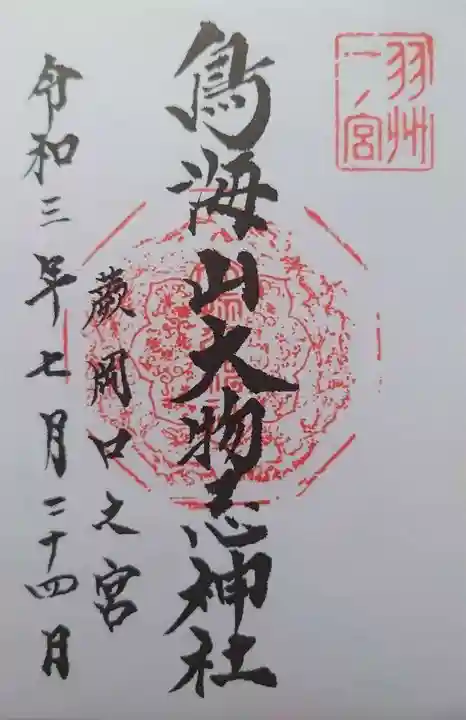 羽州
一ノ宮
鳥海山大物忌神社
蕨岡口之宮
令和三年七月二十四日